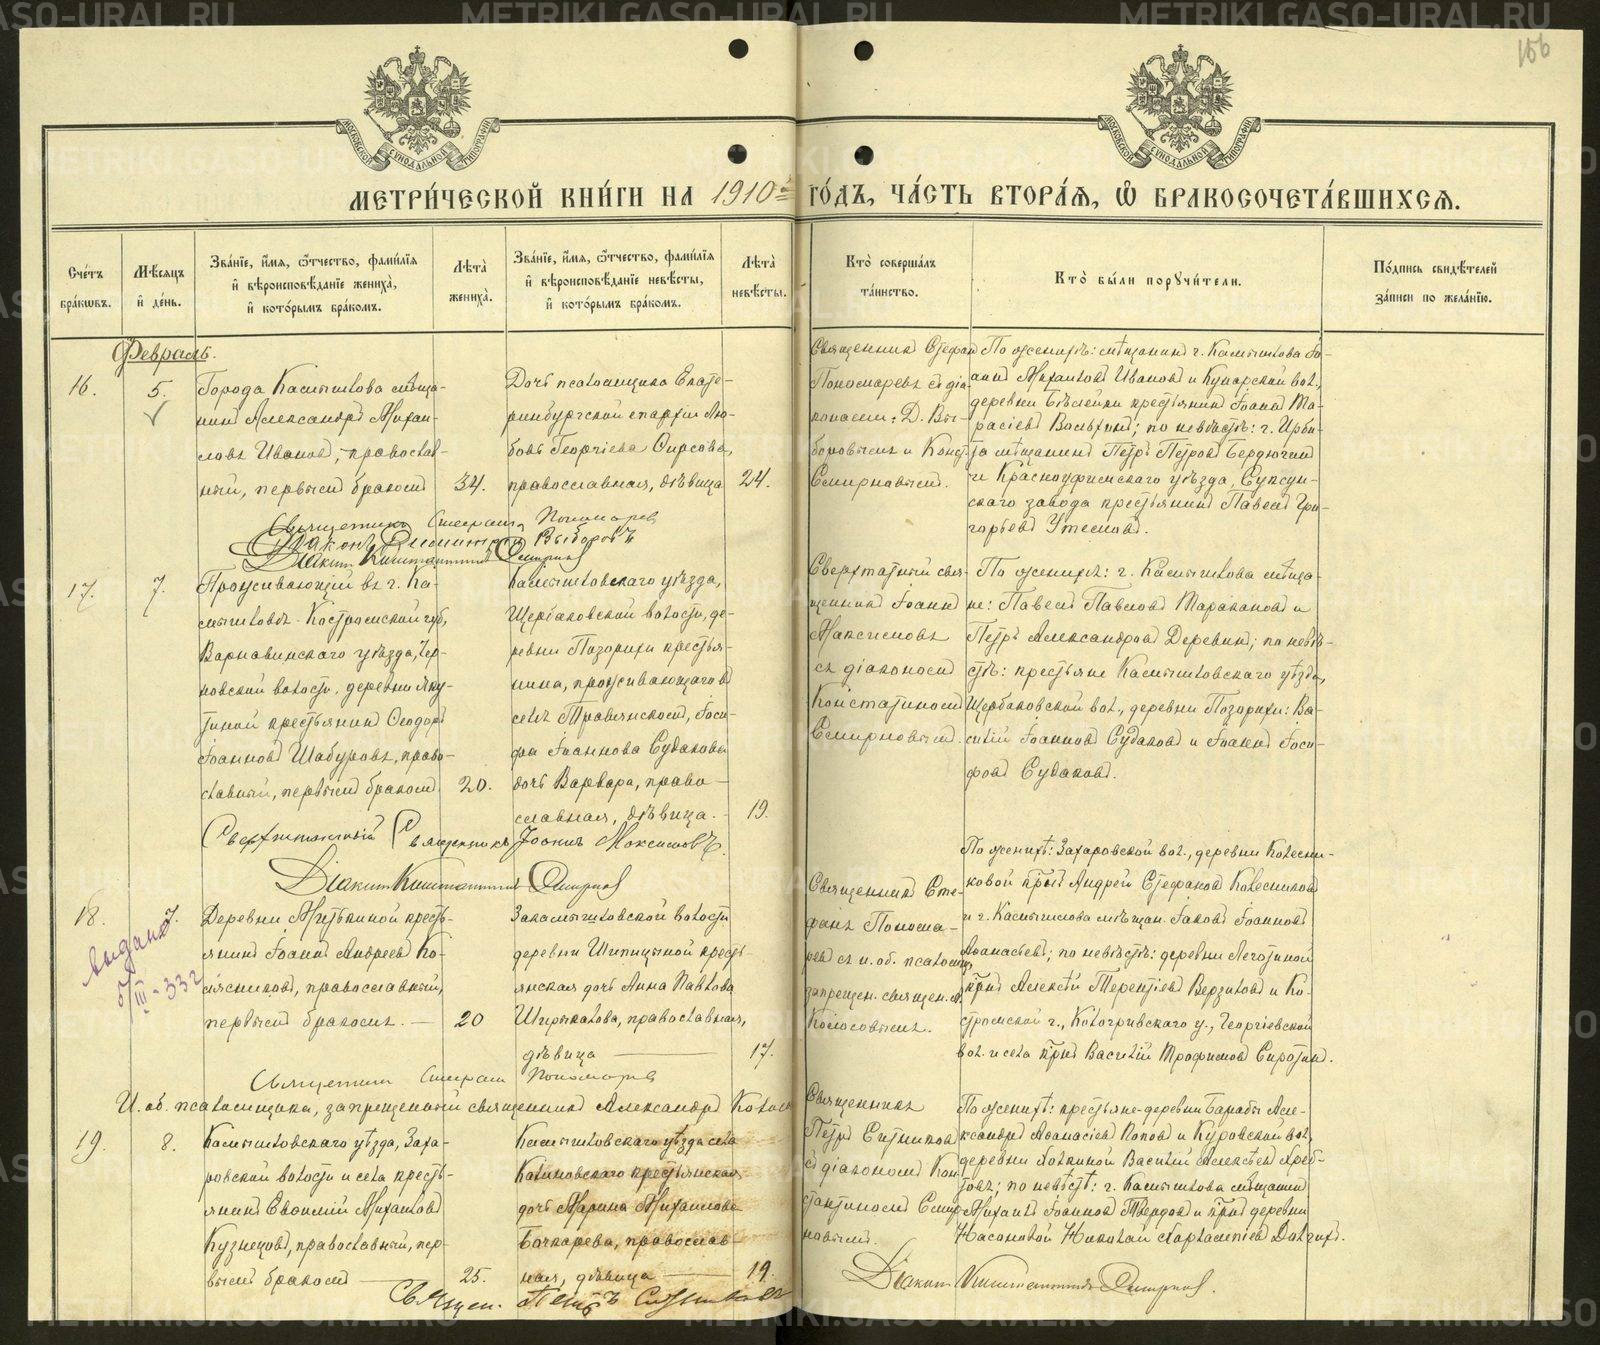 156
МОСКОВСКОЙ СѴНОДАЛЬНОЙ ТИПОГРАФІИ
МОСКОВСКОЙ СѴНОДАЛЬНОЙ ТИПОГРАФІИ
МЕТРИ́ЧЕСКОЙ КНИ́ГИ НА 1910й ГО́ДЪ, ЧА́СТЬ ВТОРА́Я, Ѽ БРАКОСОЧЕТА́ВШИХСЯ.
Сче́тъ бра́кѡвъ.
Мѣ́сяцъ и҆ де́нь.
Зва́нїе, и҆́мя, ѻ҆́тчество, фами́лїя и҆ вѣроисповѣ́данїе жениха̀, и҆ кото́рымъ бра́комъ.
Лѣта̀ жениха̀.
Зва́нїе, и҆́мя, ѻ҆́тчество, фами́лїя и҆ вѣроисповѣ́данїе невѣ́сты, и҆ кото́рымъ бра́комъ.
Лѣта̀ невѣ́сты.
Кто̀ соверша́лъ та́инство.
Кто̀ бы́ли порꙋчи́тели.
По́дпись свидѣ́телей за́писи по жела́нїю.
Февраль.
16.
5.
Города Камышлова мѣща-
нинъ Александръ Михаи-
ловъ Ивановъ, православ-
ный, первымъ бракомъ
34.
Дочь псаломщика Екате-
ринбургской епархіи Лю-
бовь Георгіева Сирсова,
православная, дѣвица
24.
Священникъ Стефанъ
Пономаревъ съ діа-
конами: Д. Вы-
боровымъ и Конст.
Смирновымъ.
По женихѣ: мѣщанинъ г. Камышлова Іо-
аннъ Михаиловъ Ивановъ и Кунарской вол.,
деревни Бѣлейки крестьянинъ Іоаннъ Та-
расіевъ Волкинъ; по невѣстѣ: г. Ирби-
та мѣщанинъ Петръ Петровъ Бердюгинъ
и Красноуфимскаго уѣзда, Суксун-
скаго завода крестьянинъ Павелъ Гри-
горьевъ Утемовъ.
Священникъ Стефанъ Пономаревъ
Діаконъ Димитрій Выборовъ
Діаконъ Константинъ Смирновъ
17.
7.
Проживающій въ г. Ка-
мышловѣ Костромской губ.,
Варнавинскаго уѣзда, Чер-
новской волости, деревни Яку-
тиной крестьянинъ Ѳеодоръ
Іоанновъ Шабуровъ, право-
славный, первымъ бракомъ
20.
Камышловскаго уѣзда,
Щербаковской волости, де-
ревни Позорихи крестья-
нина, проживающаго въ
селѣ Травянскомъ, Іоси-
фа Іоаннова Судакова
дочь Варвара, право-
славная, дѣвица.
19.
Сверхштатный свя-
щенникъ Іоаннъ
Максимовъ
съ діакономъ
Константиномъ
Смирновымъ.
По женихѣ: г. Камышлова мѣща-
не: Павелъ Павловъ Таракановъ и
Петръ Александровъ Деревинъ; по невѣ-
стѣ: крестьяне Камышловскаго уѣзда,
Щербаковской вол., деревни Позорихи: Ва-
силій Іоанновъ Судаковъ и Іоаннъ Іоси-
фовъ Судаковъ.
Сверхштатный Священникъ Іоаннъ Максимовъ.
Діаконъ Константинъ Смирновъ
18.
7.
Выдано
5/III - 332
Деревни Митькиной кресть-
янинъ Іоаннъ Андреевъ Ко-
лясниковъ, православный,
первымъ бракомъ.
20
Закамышловской волости
деревни Шипицыной кресть-
янская дочь Анна Павлова
Ширыкалова, православная,
дѣвица
17.
Священникъ Сте-
фанъ Понома-
ревъ съ и. об. псаломщ.
запрещен. священ. А.
Колосовымъ.
По женихѣ: Захаровской вол., деревни Колесни-
ковой кр-нъ Андрей Стефановъ Колесниковъ
и г. Камышлова мѣщан. Іаковъ Іоанновъ
Аѳанасьевъ; по невѣстѣ: деревни Леготиной
кр-нъ Алексѣй Терентіевъ Верзиковъ и Ко-
стромской г., Кологривскаго у., Георгіевской
вол. и села кр-нъ Василій Трофимовъ Сиротинъ.
Священникъ Стефанъ Пономаревъ
И. об. псаломщика, запрещенный священникъ Александръ Колосовъ
19.
8.
Камышловскаго уѣзда, Заха-
ровской волости и села кресть-
янинъ Евѳимій Михаиловъ
Кузнецовъ, православный, пер-
вымъ бракомъ
25.
Камышловскаго уѣзда села
Калиновскаго крестьянская
дочь Марина Михаилова
Бочкарева, православ-
ная, дѣвица
19.
Священникъ
Петръ Ситниковъ
съ діакономъ Кон-
стантиномъ Смир-
новымъ.
По женихѣ: крестьяне деревни Барабы Але-
ксандръ Аѳанасіевъ Поповъ и Куровской вол.,
деревни Ялкиной Василій Алексѣевъ Хреб-
товъ; по невѣстѣ: г. Камышлова мѣщанинъ
Михаилъ Іоанновъ Твердовъ и кр-нъ деревни
Насоновой Николай Харлампіевъ Далгихъ.
Священ. Петръ Ситниковъ
Діаконъ Константинъ Смирновъ.
METRIKI.GASO-URAL.RU